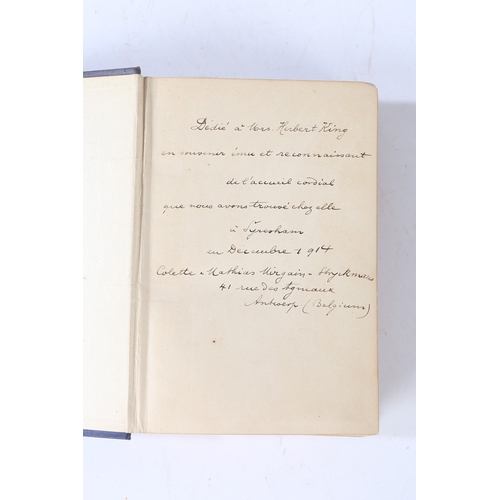 Dédié à Mrs. Herbert King
en souvenir ému et reconnaissant
de l'accueil cordial
que nous avons trouvé chez elle
à Syresham
en Décembre 1914
Colette & Mathias
41 rue des Agneaux
Antwerp (Belgium)